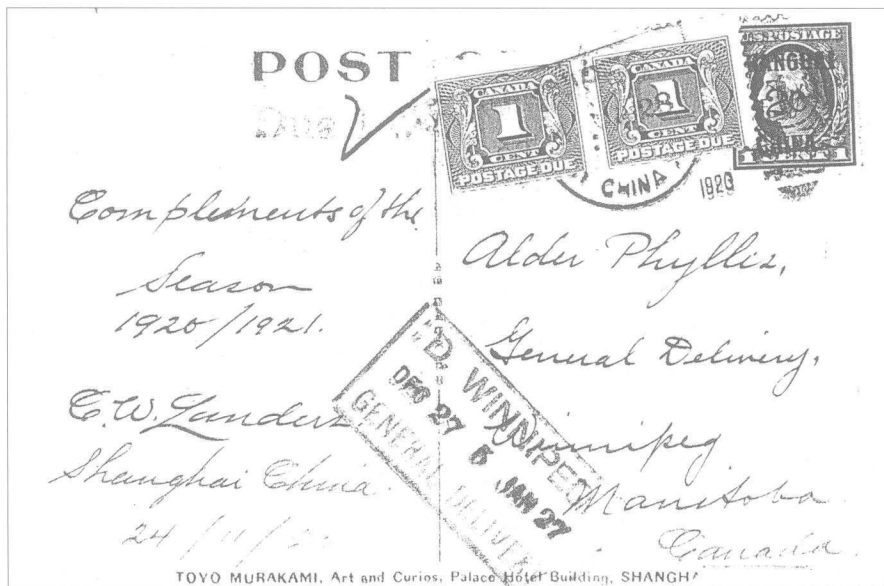 POST
Due
CANADA
1
CENT
POSTAGE DUE
CANADA
28
1
CENT
POSTAGE DUE
U.S. POSTAGE
SHANGHAI
CHINA
1 CENT 1
CHINA
1920
Compliments of the
Season
1920/1921.
C.W.
Shanghai China
24/11/
Alder Phyllis,
General Delivery,
Winnipeg
Manitoba
Canada.
"D. WINNIPEG
DEC 27 5 JAN 27
GENERAL DELIVERY
TOYO MURAKAMI, Art and Curios, Palace Hotel Building, SHANGHA